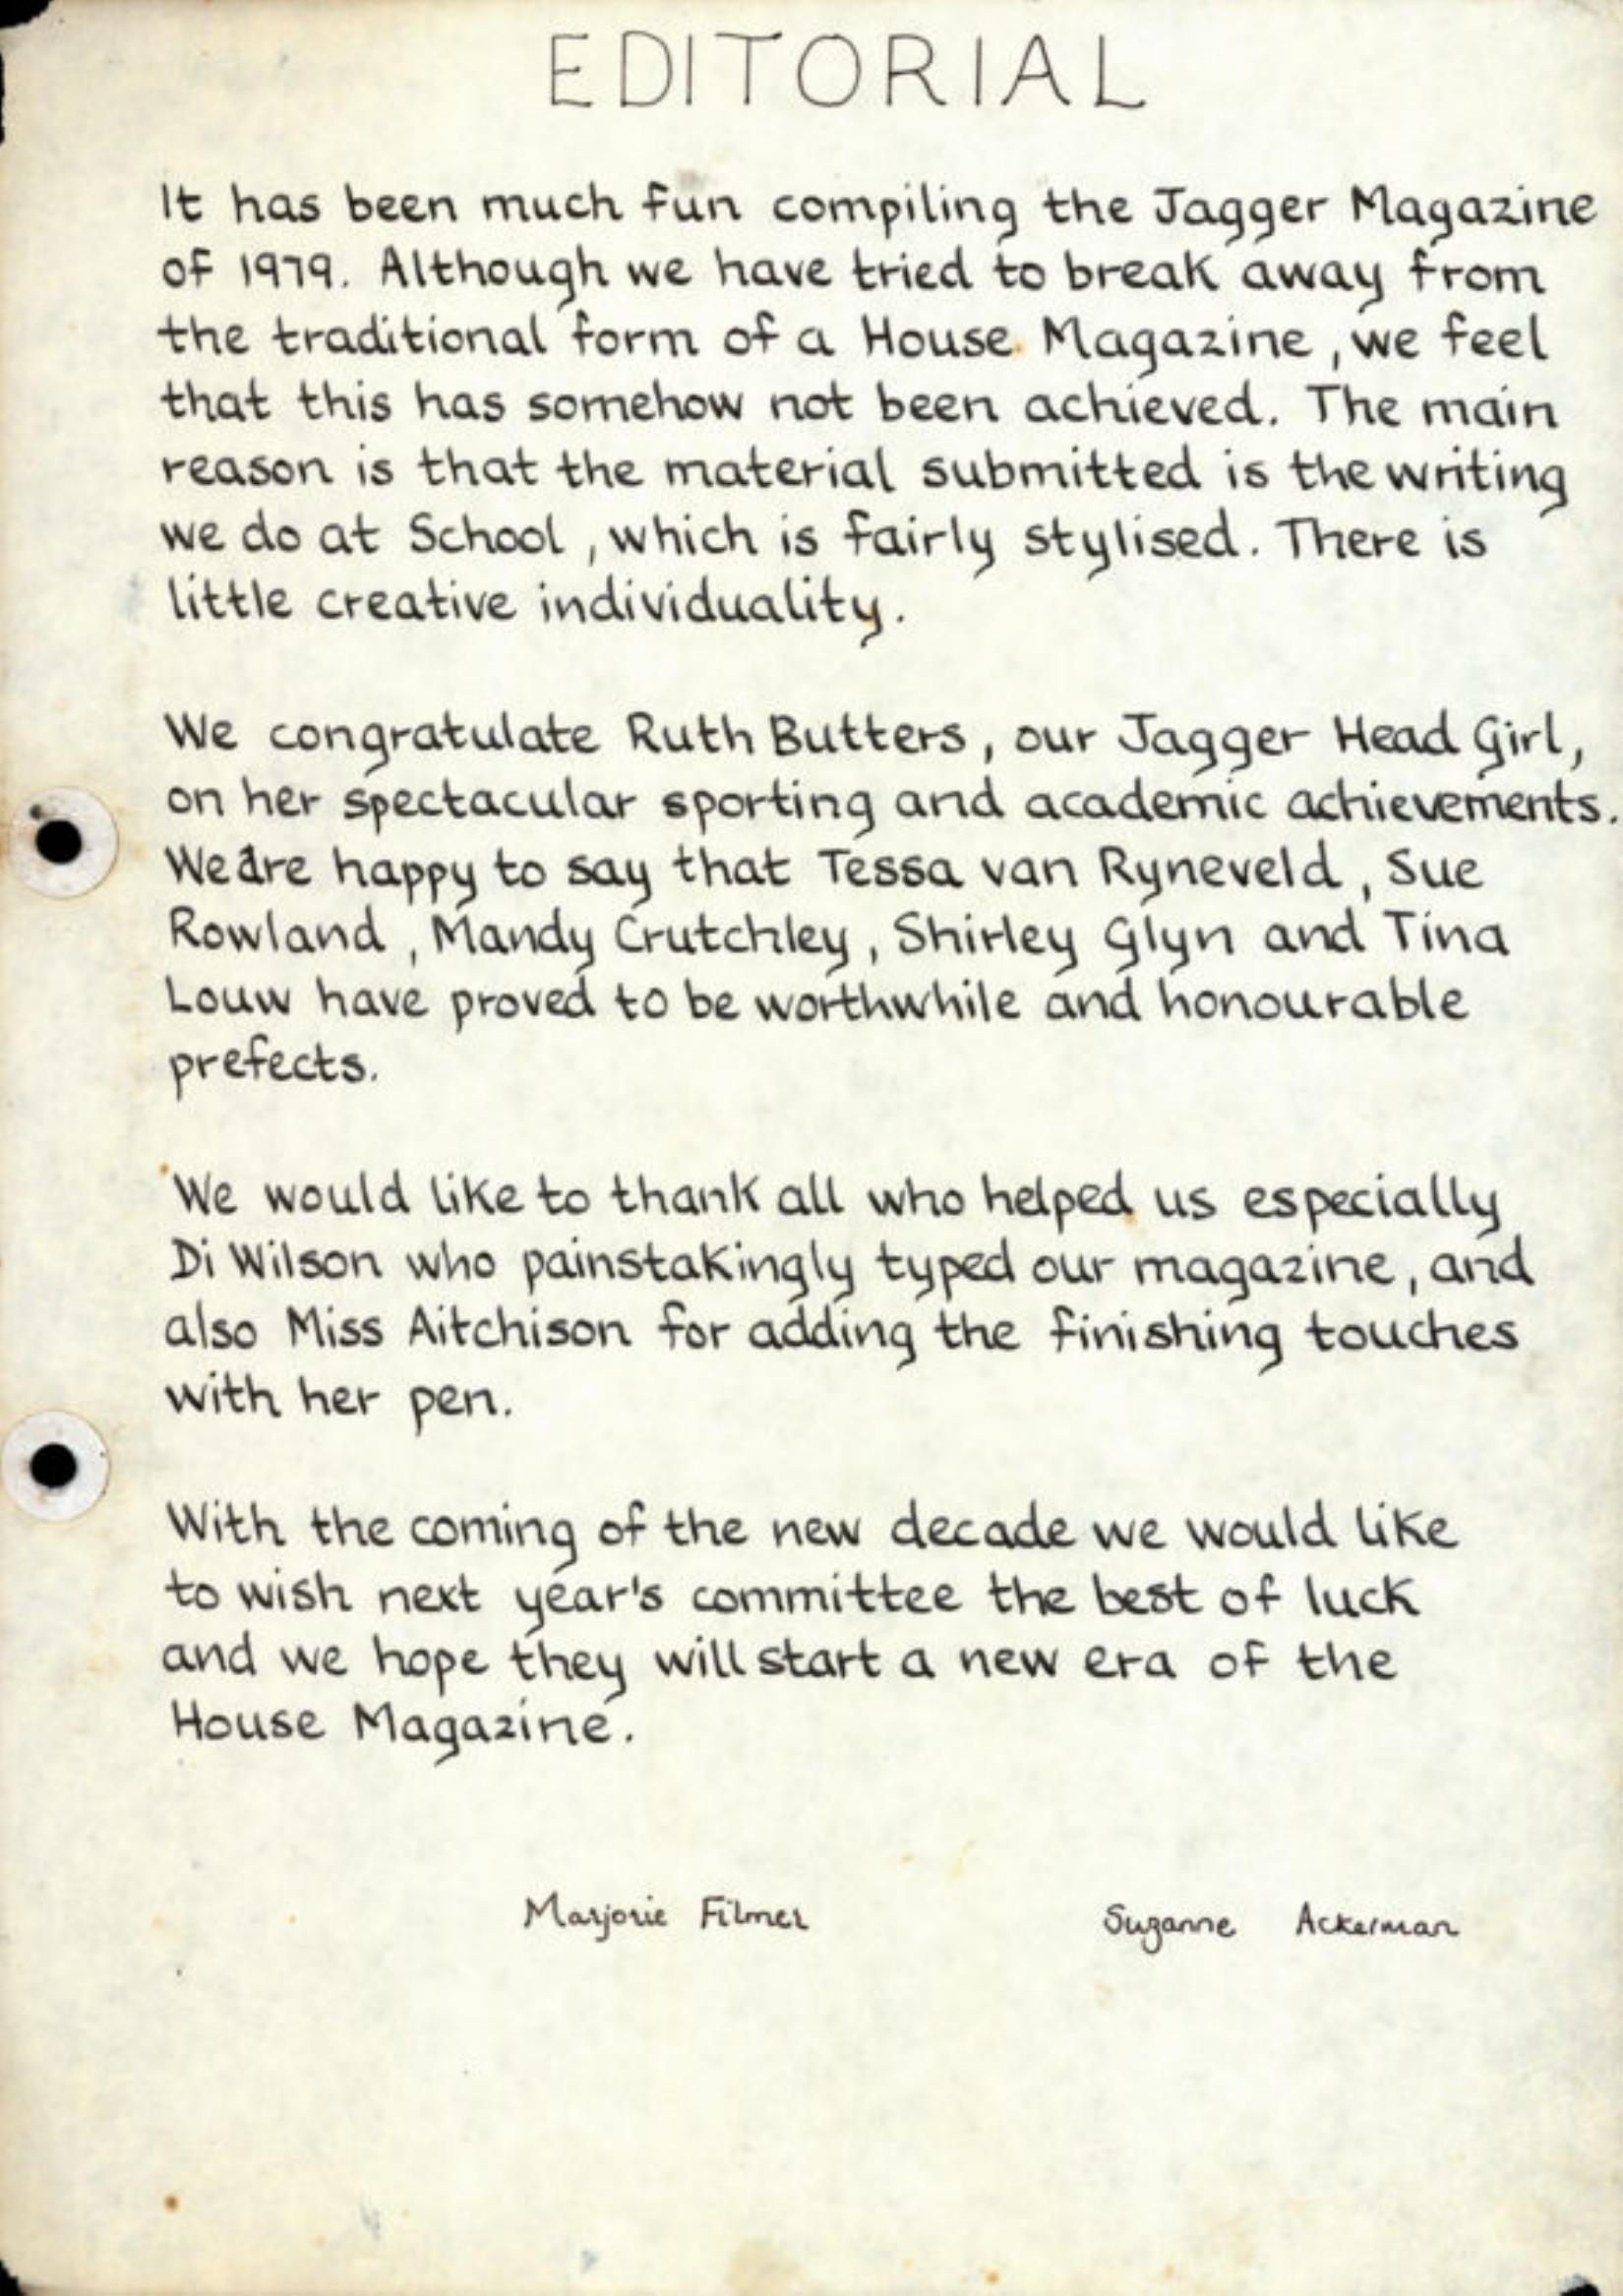 EDITORIAL
It has been much fun compiling the Jagger Magazine
of 1979. Although we have tried to break away from
the traditional form of a House Magazine, we feel
that this has somehow not been achieved. The main
reason is that the material submitted is the writing
we do at School, which is fairly stylised. There is
little creative individuality.
We congratulate Ruth Butters, our Jagger Head Girl,
on her spectacular sporting and academic achievements.
We are happy to say that Tessa van Ryneveld, Sue
Rowland, Mandy Crutchley, Shirley Glyn and Tina
Louw have proved to be worthwhile and honourable
prefects.
We would like to thank all who helped us especially
Di Wilson who painstakingly typed our magazine, and
also Miss Aitchison for adding the finishing touches
with her pen.
With the coming of the new decade we would like
to wish next year's committee the best of luck
and we hope they will start a new era of the
House Magazine.
Marjorie Filmer Suzanne Ackerman